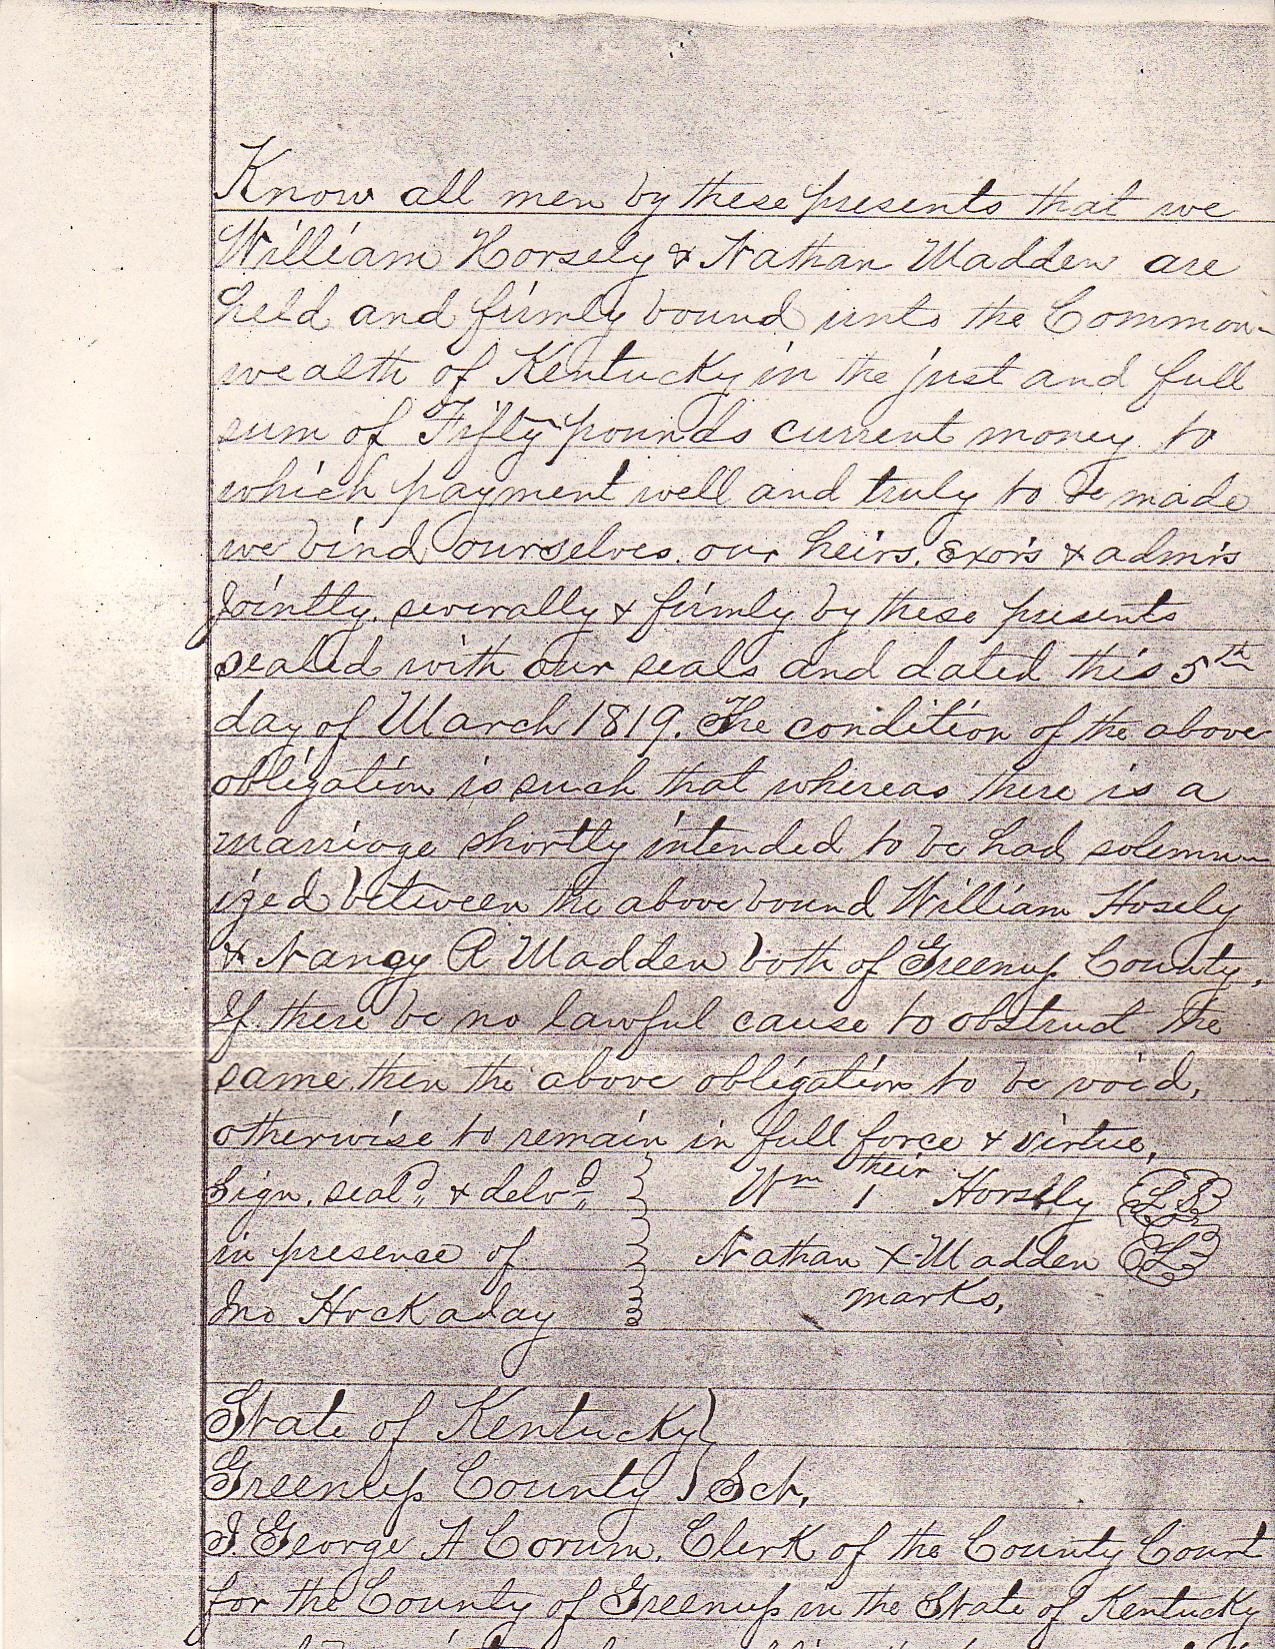 Know all men by these presents that we
William Horsely & Nathan Madden are
held and firmly bound unto the Common-
wealth of Kentucky in the just and full
sum of Fifty pounds current money to
which payment well and truly to be made
we bind ourselves. our heirs, Exors & admrs
Jointly, severally & firmly by these presents
sealed with our seals and dated this 5th
day of March 1819. The condition of the above
obligation is such that whereas there is a
marriage shortly intended to be had solemn
ized between the above bound William Hosely
& Nancy R Madden both of Greenup County,
If there be no lawful cause to obstruct the
same, then the above obligation to be void,
otherwise to remain in full force & virtue,
Sign, seald, & delvd,
in presence of
Jno Hockaday
their
Wm 1 Horsely LS
Nathan X Madden LS
marks,
State of Kentucky
Greenup County Sct,
I. George A Corum, Clerk of the County Court
for the County of Greenup in the State of Kentucky